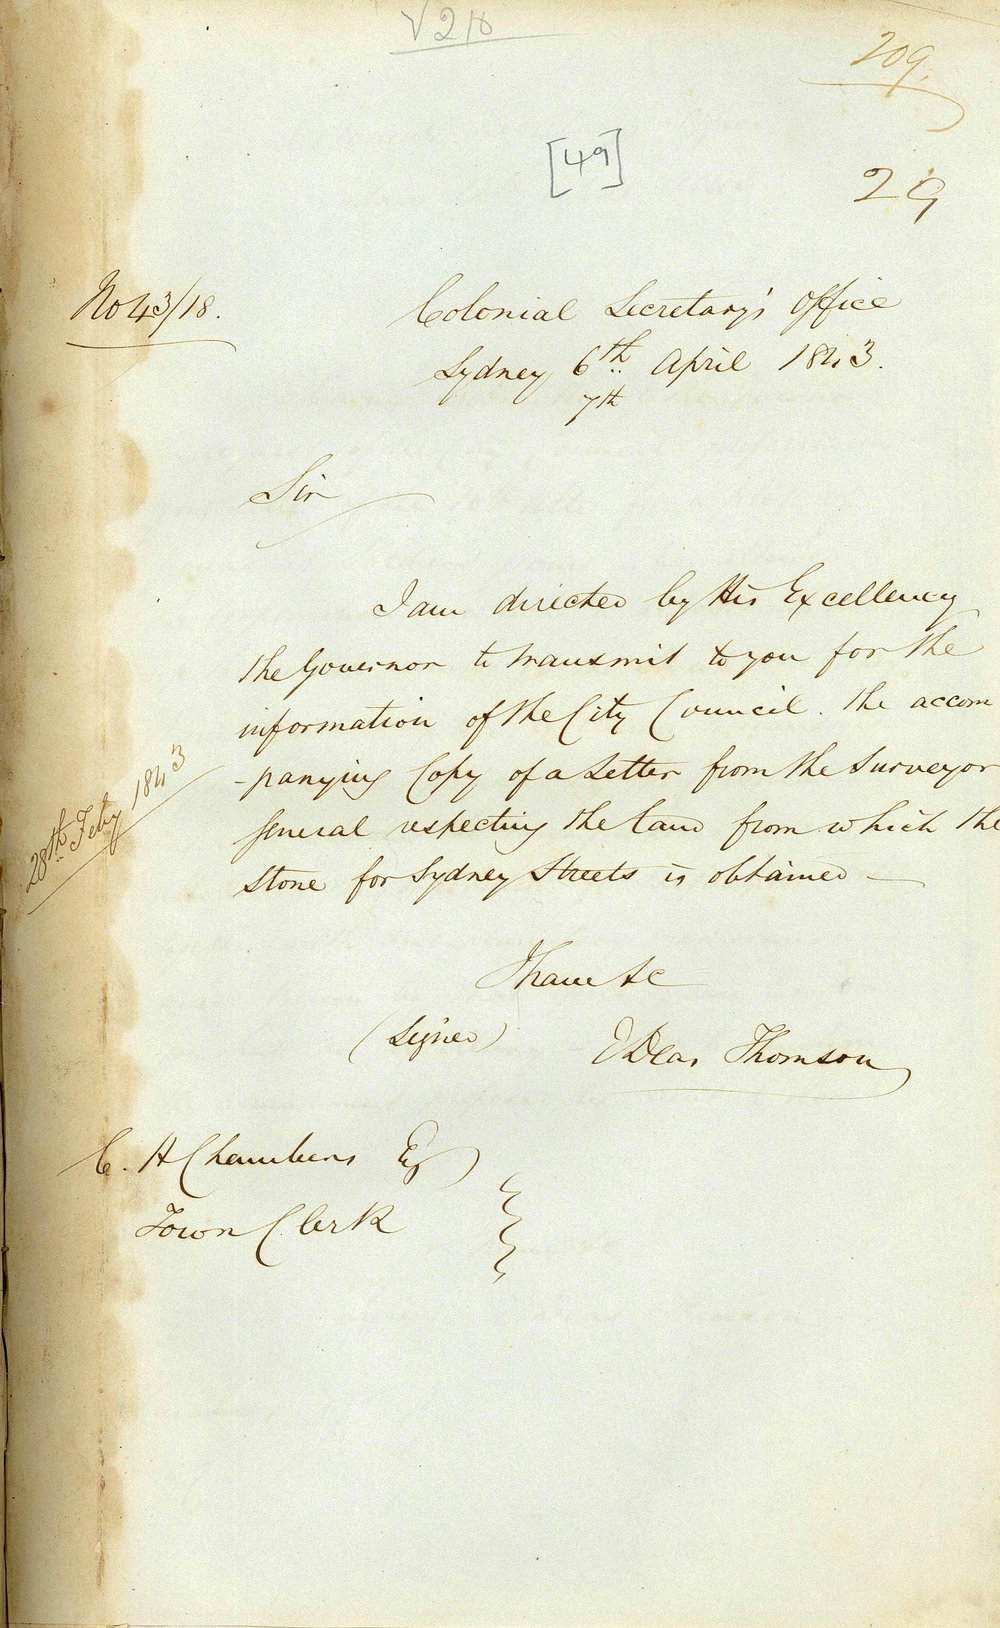 V210
209.
[49]
29
No 43/18.
Colonial Secretary's Office
Sydney 6th April 1843.
7th
Sir
I am directed by His Excellency
the Governor to transmit to you for the
information of the City Council. the accom
-panying Copy of a Letter from the Surveyor
General respecting the land from which the
Stone for Sydney Streets is obtained —
28th Feby 1843
I have &c
(Signed)
E Deas Thomson
C. H Chambers Esq
Town Clerk